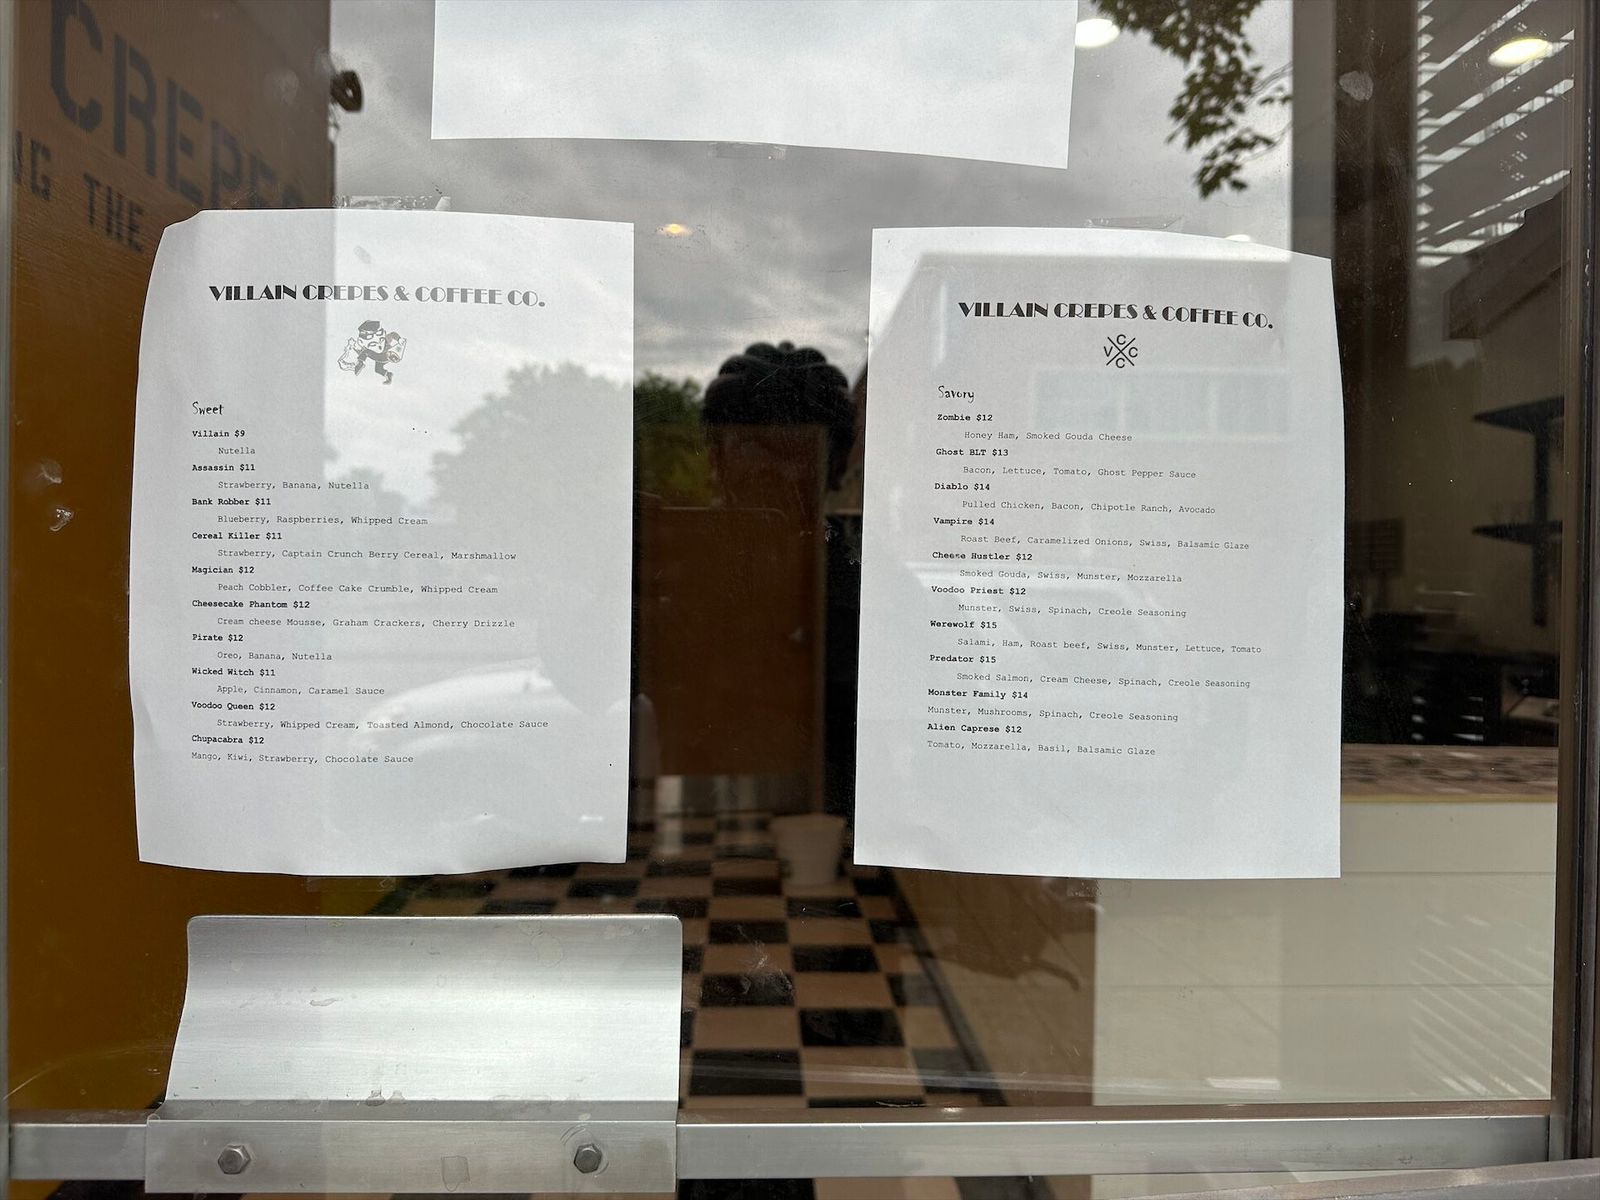 CREPES
THE
VILLAIN CREPES & COFFEE CO.
Sweet
Villain $9
Nutella
Assassin $11
Strawberry, Banana, Nutella
Bank Robber $11
Blueberry, Raspberries, Whipped Cream
Cereal Killer $11
Strawberry, Captain Crunch Berry Cereal, Marshmallow
Magician $12
Peach Cobbler, Coffee Cake Crumble, Whipped Cream
Cheesecake Phantom $12
Cream cheese Mousse, Graham Crackers, Cherry Drizzle
Pirate $12
Oreo, Banana, Nutella
Wicked Witch $11
Apple, Cinnamon, Caramel Sauce
Voodoo Queen $12
Strawberry, Whipped Cream, Toasted Almond, Chocolate Sauce
Chupacabra $12
Mango, Kiwi, Strawberry, Chocolate Sauce
VILLAIN CREPES & COFFEE CO.
C
V C
C
Savory
Zombie $12
Honey Ham, Smoked Gouda Cheese
Ghost BLT $13
Bacon, Lettuce, Tomato, Ghost Pepper Sauce
Diablo $14
Pulled Chicken, Bacon, Chipotle Ranch, Avocado
Vampire $14
Roast Beef, Caramelized Onions, Swiss, Balsamic Glaze
Cheese Hustler $12
Smoked Gouda, Swiss, Munster, Mozzarella
Voodoo Priest $12
Munster, Swiss, Spinach, Creole Seasoning
Werewolf $15
Salami, Ham, Roast beef, Swiss, Munster, Lettuce, Tomato
Predator $15
Smoked Salmon, Cream Cheese, Spinach, Creole Seasoning
Monster Family $14
Munster, Mushrooms, Spinach, Creole Seasoning
Alien Caprese $12
Tomato, Mozzarella, Basil, Balsamic Glaze